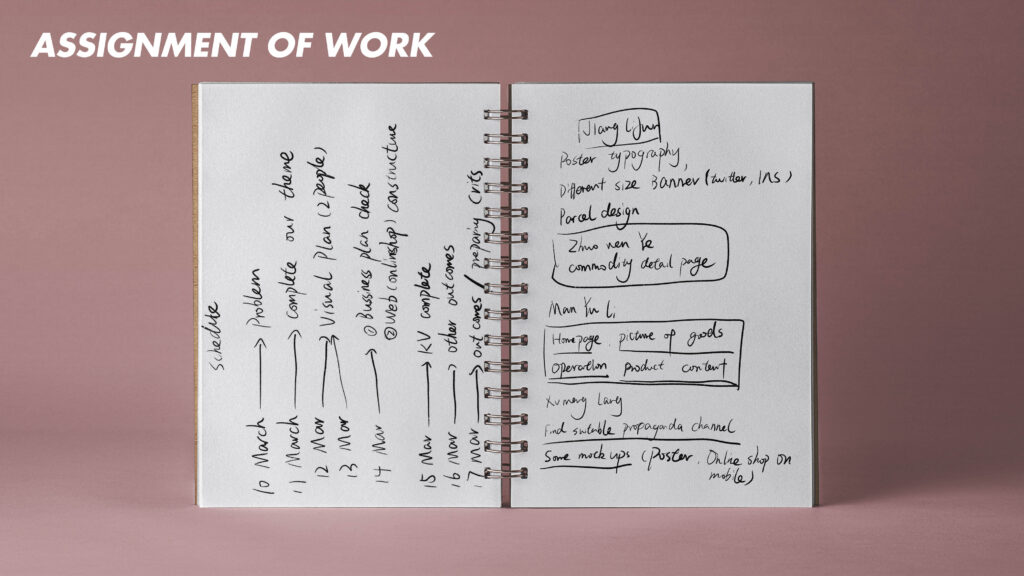 ASSIGNMENT OF WORK
Schedule
10 March → Problem
11 March → complete our theme
12 Mar → Visual Plan (2 people)
13 Mar
14 Mar → ① Bussiness plan check
② Web (onlinshop) constructure
15 Mar → KV complate
16 Mar → other outcomes
17 Mar → outcomes / preparing crits
Jiang Lijun
Poster typography,
Different size Banner (twitter, INS)
Parcel design
Zhuo wen Ye
commodity detail page
Man Yu Li
Homepage. picture of goods
Operation product content
Xumeng Lang
Find suitable propaganda channel
Some mock ups (poster. Online shop on
mobile)